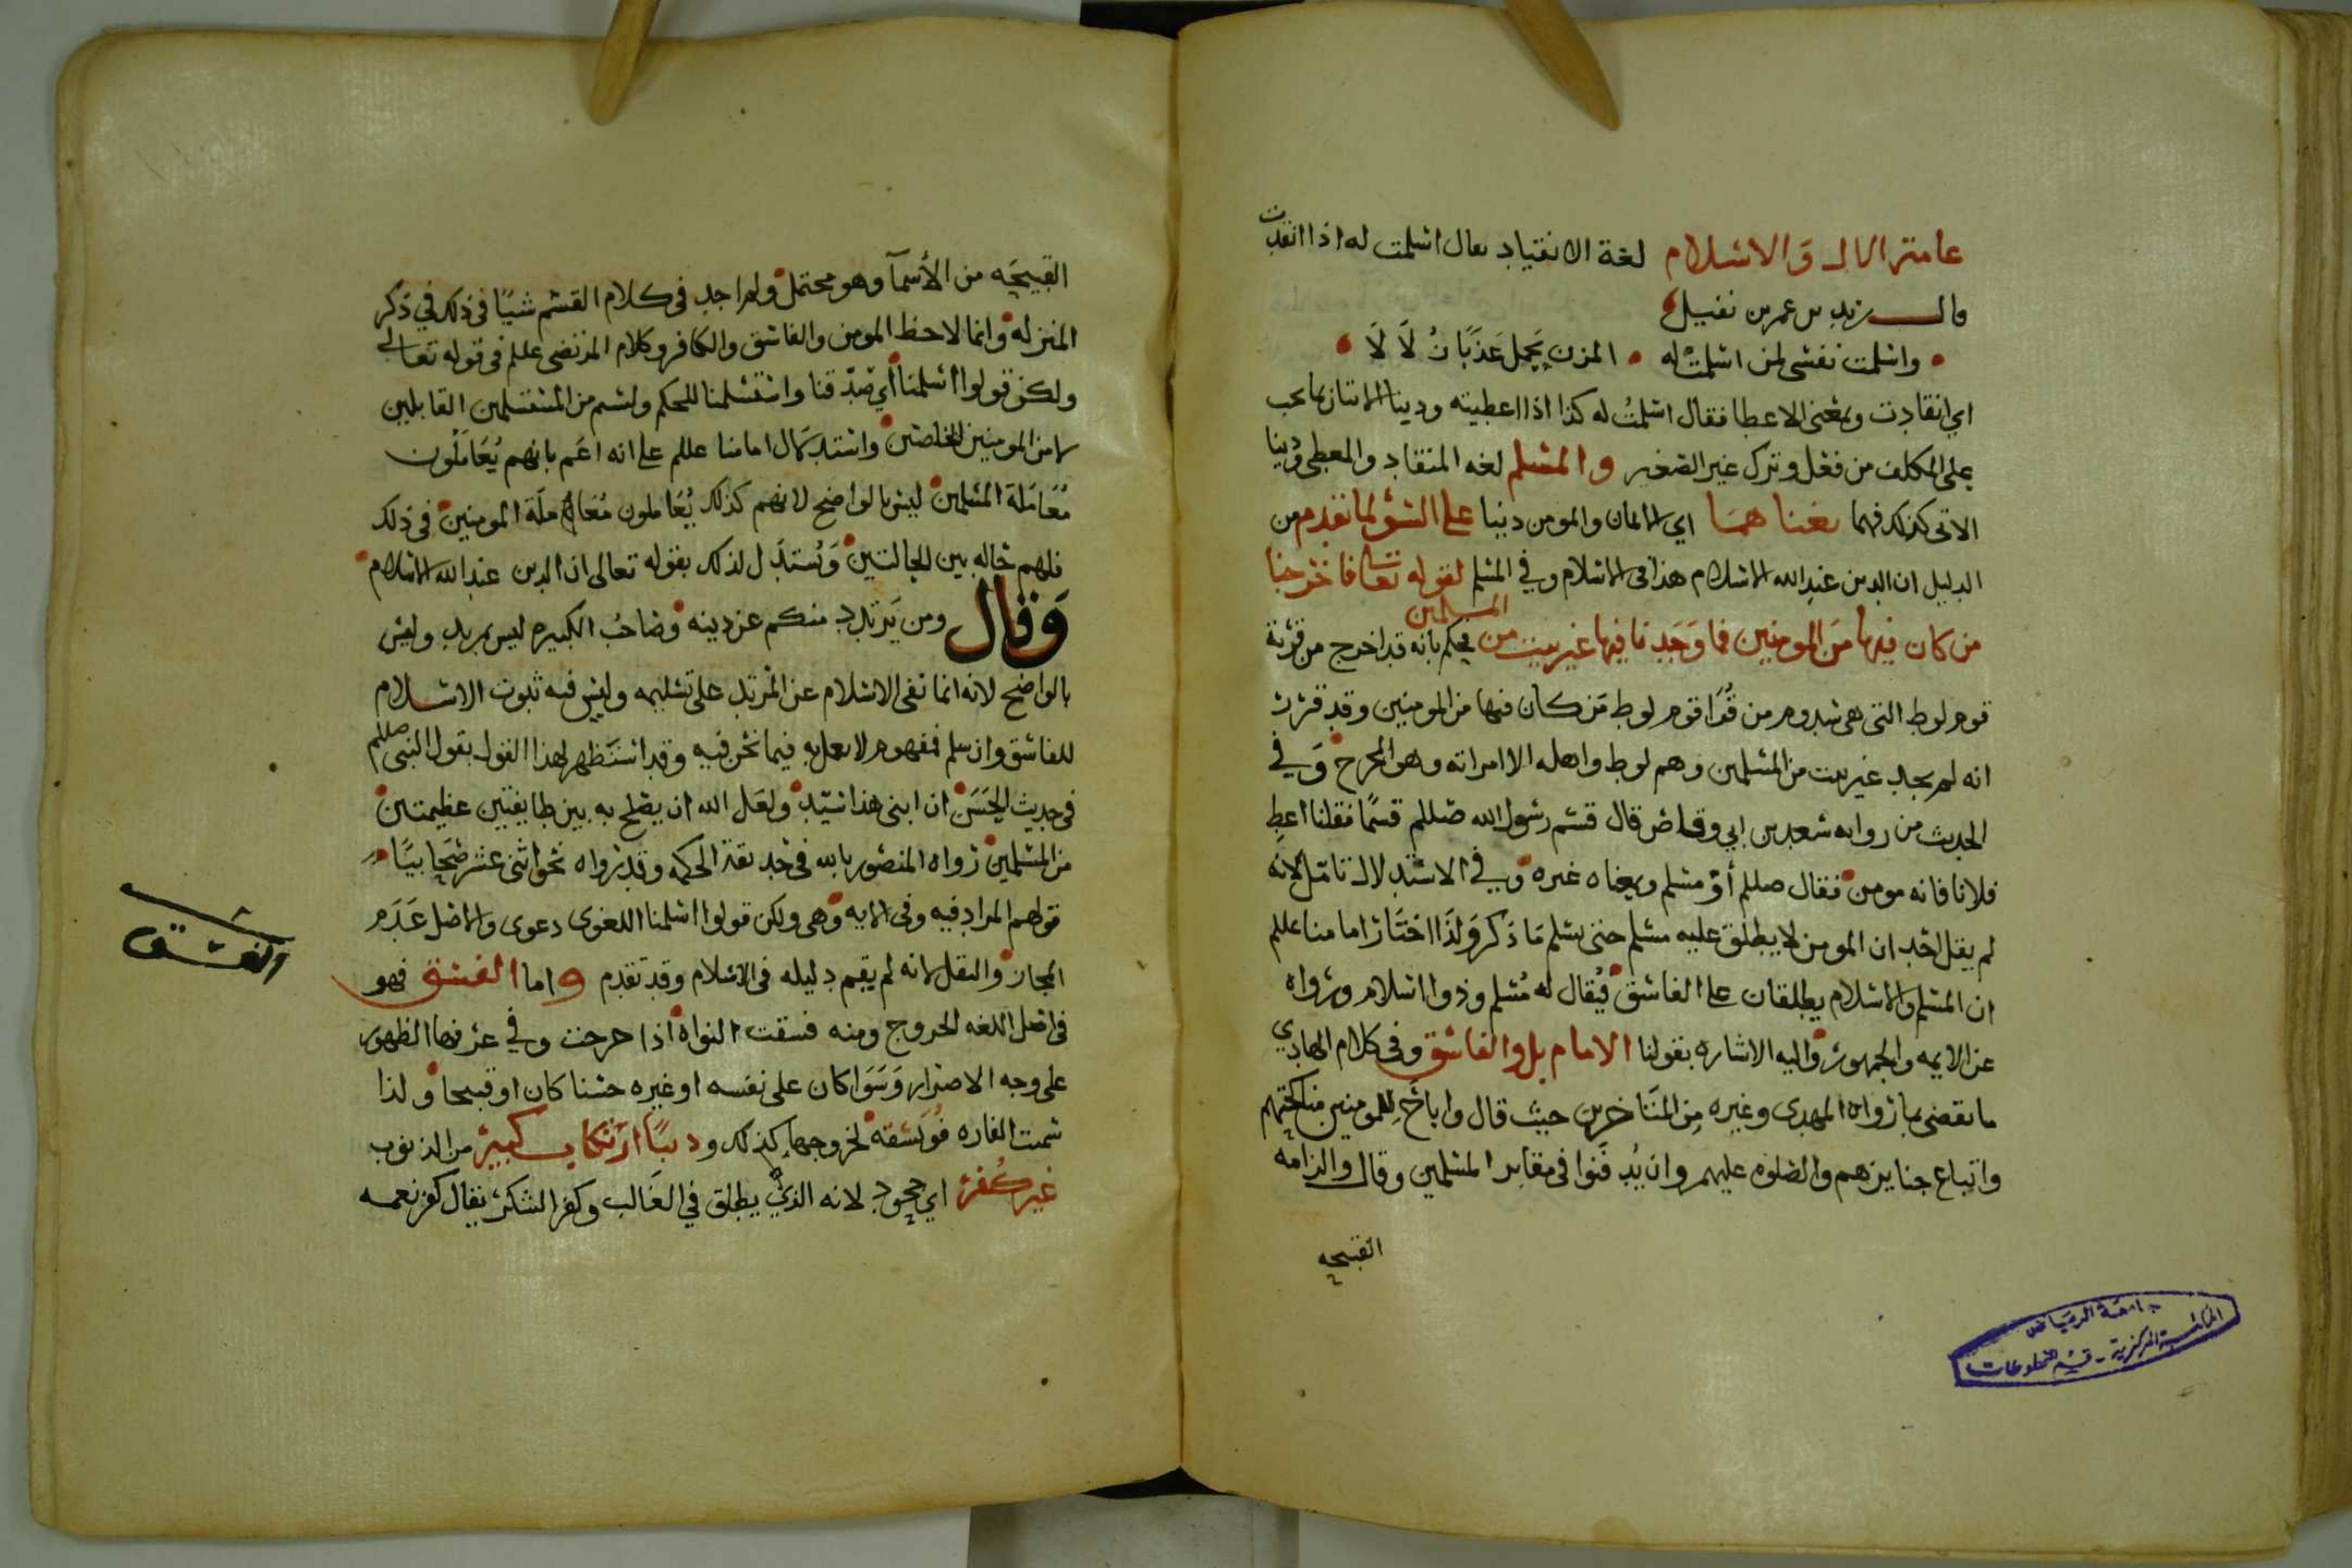 والاسلام لغة الانقياد يقال اسلمت له اذا انقدت
قال زيد بن عمر بن نفيل
واسلمت نفسي لمن اسلمت له المزن يحمل عذبا زلالا
اي انقادت وبمعنى الاعطا فقال اسلمت له كذا اذا اعطيته ودينا الاتيان بما يجب
على المكلف من فعل وترك غير الصغير والمسلم لغه المنقاد والمعطي ودينا
الاتي كذلك فهما بمعناهما اي الايمان والمومن دينا على السوا لما تقدم من
الدليل ان الدين عند الله الاسلام هذا في الاسلام وفي المسلم لقوله تعالى فاخرجنا
من كان فيها من المومنين فما وجدنا فيها غير بيت من المسلمين فحكم بانه قد اخرج من قرية
قوم لوط التي هي سدوم من قرا قوم لوط من كان فيها من المومنين وقد قرر
انه لم يجد غير بيت من المسلمين وهم لوط واهله الا امراته وهو المخرج وفي
الحديث من روايه سعد بن ابي وقاص قال قسم رسول الله صللم قسما فقلنا اعط
فلانا فانه مومن فقال صللم أو مسلم وبمعناه غيره وفي الاستدلال تامل لانه
لم يقل احد ان المومن لا يطلق عليه مسلم حتى يسلم ما ذكر ولذا اختار امامنا عللم
ان المسلم والاسلام يطلقان على الفاسق فيقال له مسلم وذو اسلام ورواه
عن الايمه والجمهور واليه الاشاره بقولنا الامام بل والفاسق وفي كلام الهادي
ما يقضي بما رواه المهدي وغيره من المتاخرين حيث قال واباح للمومنين مناكحتهم
واتباع جنايزهم والصلوه عليهم وان يدفنوا في مقابر المسلمين وقال والزامه
القبيحه
جامعة الرياض
المكتبة المركزية - قسم المخطوطات
القبيحه من الأسمآ وهو محتمل ولم اجد في كلام القسم شيئا في ذلك في ذكر
المنزله وانما لاحظ المومن والفاسق والكافر وكلام المرتضى عللم في قوله تعالى
ولكن قولوا اسلمنا أي صدقنا واستسلمنا للحكم ولستم من المستسلمين القابلين
لا من المومنين المخلصين واستدلال امامنا عللم على انه اعم بانهم يعاملون
معاملة المسلمين ليس بالواضح لانهم كذلك يعاملون معاملة المومنين في ذلك
فلهم حاله بين الحالتين وتستدل لذلك بقوله تعالى ان الدين عند الله الاسلام
وقال ومن يرتدد منكم عن دينه وصاحب الكبيره ليس بمرتد وليس
بالواضح لانه انما نفى الاسلام عن المرتد على تسليمه وليس فيه ثبوت الاسلام
للفاسق وان سلم فمفهوم لا يعمل به فيما نحن فيه وقد استظهر لهذا القول بقول النبي صللم
في حديث الحسن ان ابني هذا سيد ولعل الله ان يصلح به بين طايفتين عظيمتين
من المسلمين رواه المنصور بالله في حديقة الحكمه وقد رواه نحو اثني عشر صحابيا
قولهم المراد فيه وفي الايه وهي ولكن قولوا اسلمنا اللغوي دعوى والاصل عدم
المجاز والنقل لانه لم يقم دليله في الاسلام وقد تقدم واما الفسق فهو
في اصل اللغه الخروج ومنه فسقت النواه اذا خرجت وفي عرفها الظهور
على وجه الاضرار وسوا كان على نفسه او غيره حسنا كان او قبيحا ولذا
سمت الفاره فويسقه لخروجها كذلك ودينا ارتكاب كبير من الذنوب
غير كفر اي جحود لانه الذي يطلق في الغالب وكفر الشكر يقال كفر نعمه
الفسق